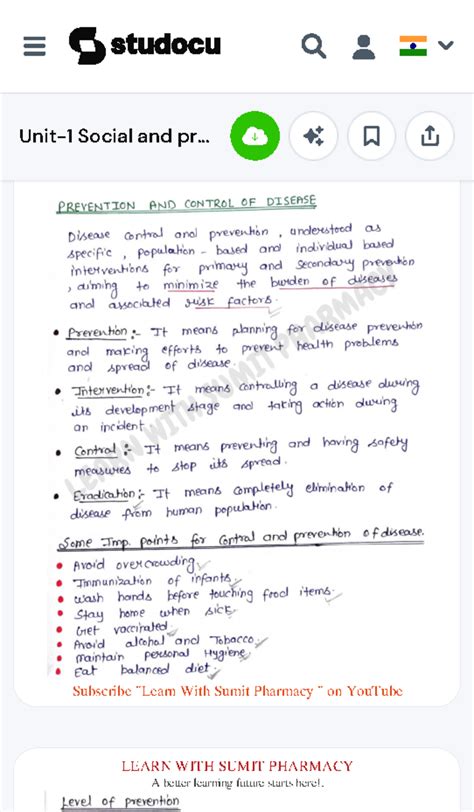 studocu
Unit-1 Social and pr...
PREVENTION AND CONTROL OF DISEASE
Disease control and prevention, understood as
specific, population - based and individual based
interventions for primary and secondary prevention
, aiming to minimize the burden of diseases
and associated risk factors.
• Prevention :- It means planning for disease prevention
and making efforts to prevent health problems
and spread of disease.
• Intervention :- It means controlling a disease during
its development stage and taking action during
an incident.
• Control :- It means preventing and having safety
measures to stop its spread.
• Eradication :- It means completely elimination of
disease from human population.
Some Imp. points for control and prevention of disease.
• Avoid overcrowding.
• Immunization of infants.
• wash hands before touching food items.
• Stay home when sick.
• Get vaccinated.
• Avoid alcohal and Tobacco.
• maintain personal Hygiene.
• Eat balanced diet.
LEARN WITH SUMIT PHARMACY
Subscribe "Learn With Sumit Pharmacy " on YouTube
LEARN WITH SUMIT PHARMACY
A better learning future starts here!.
Level of prevention